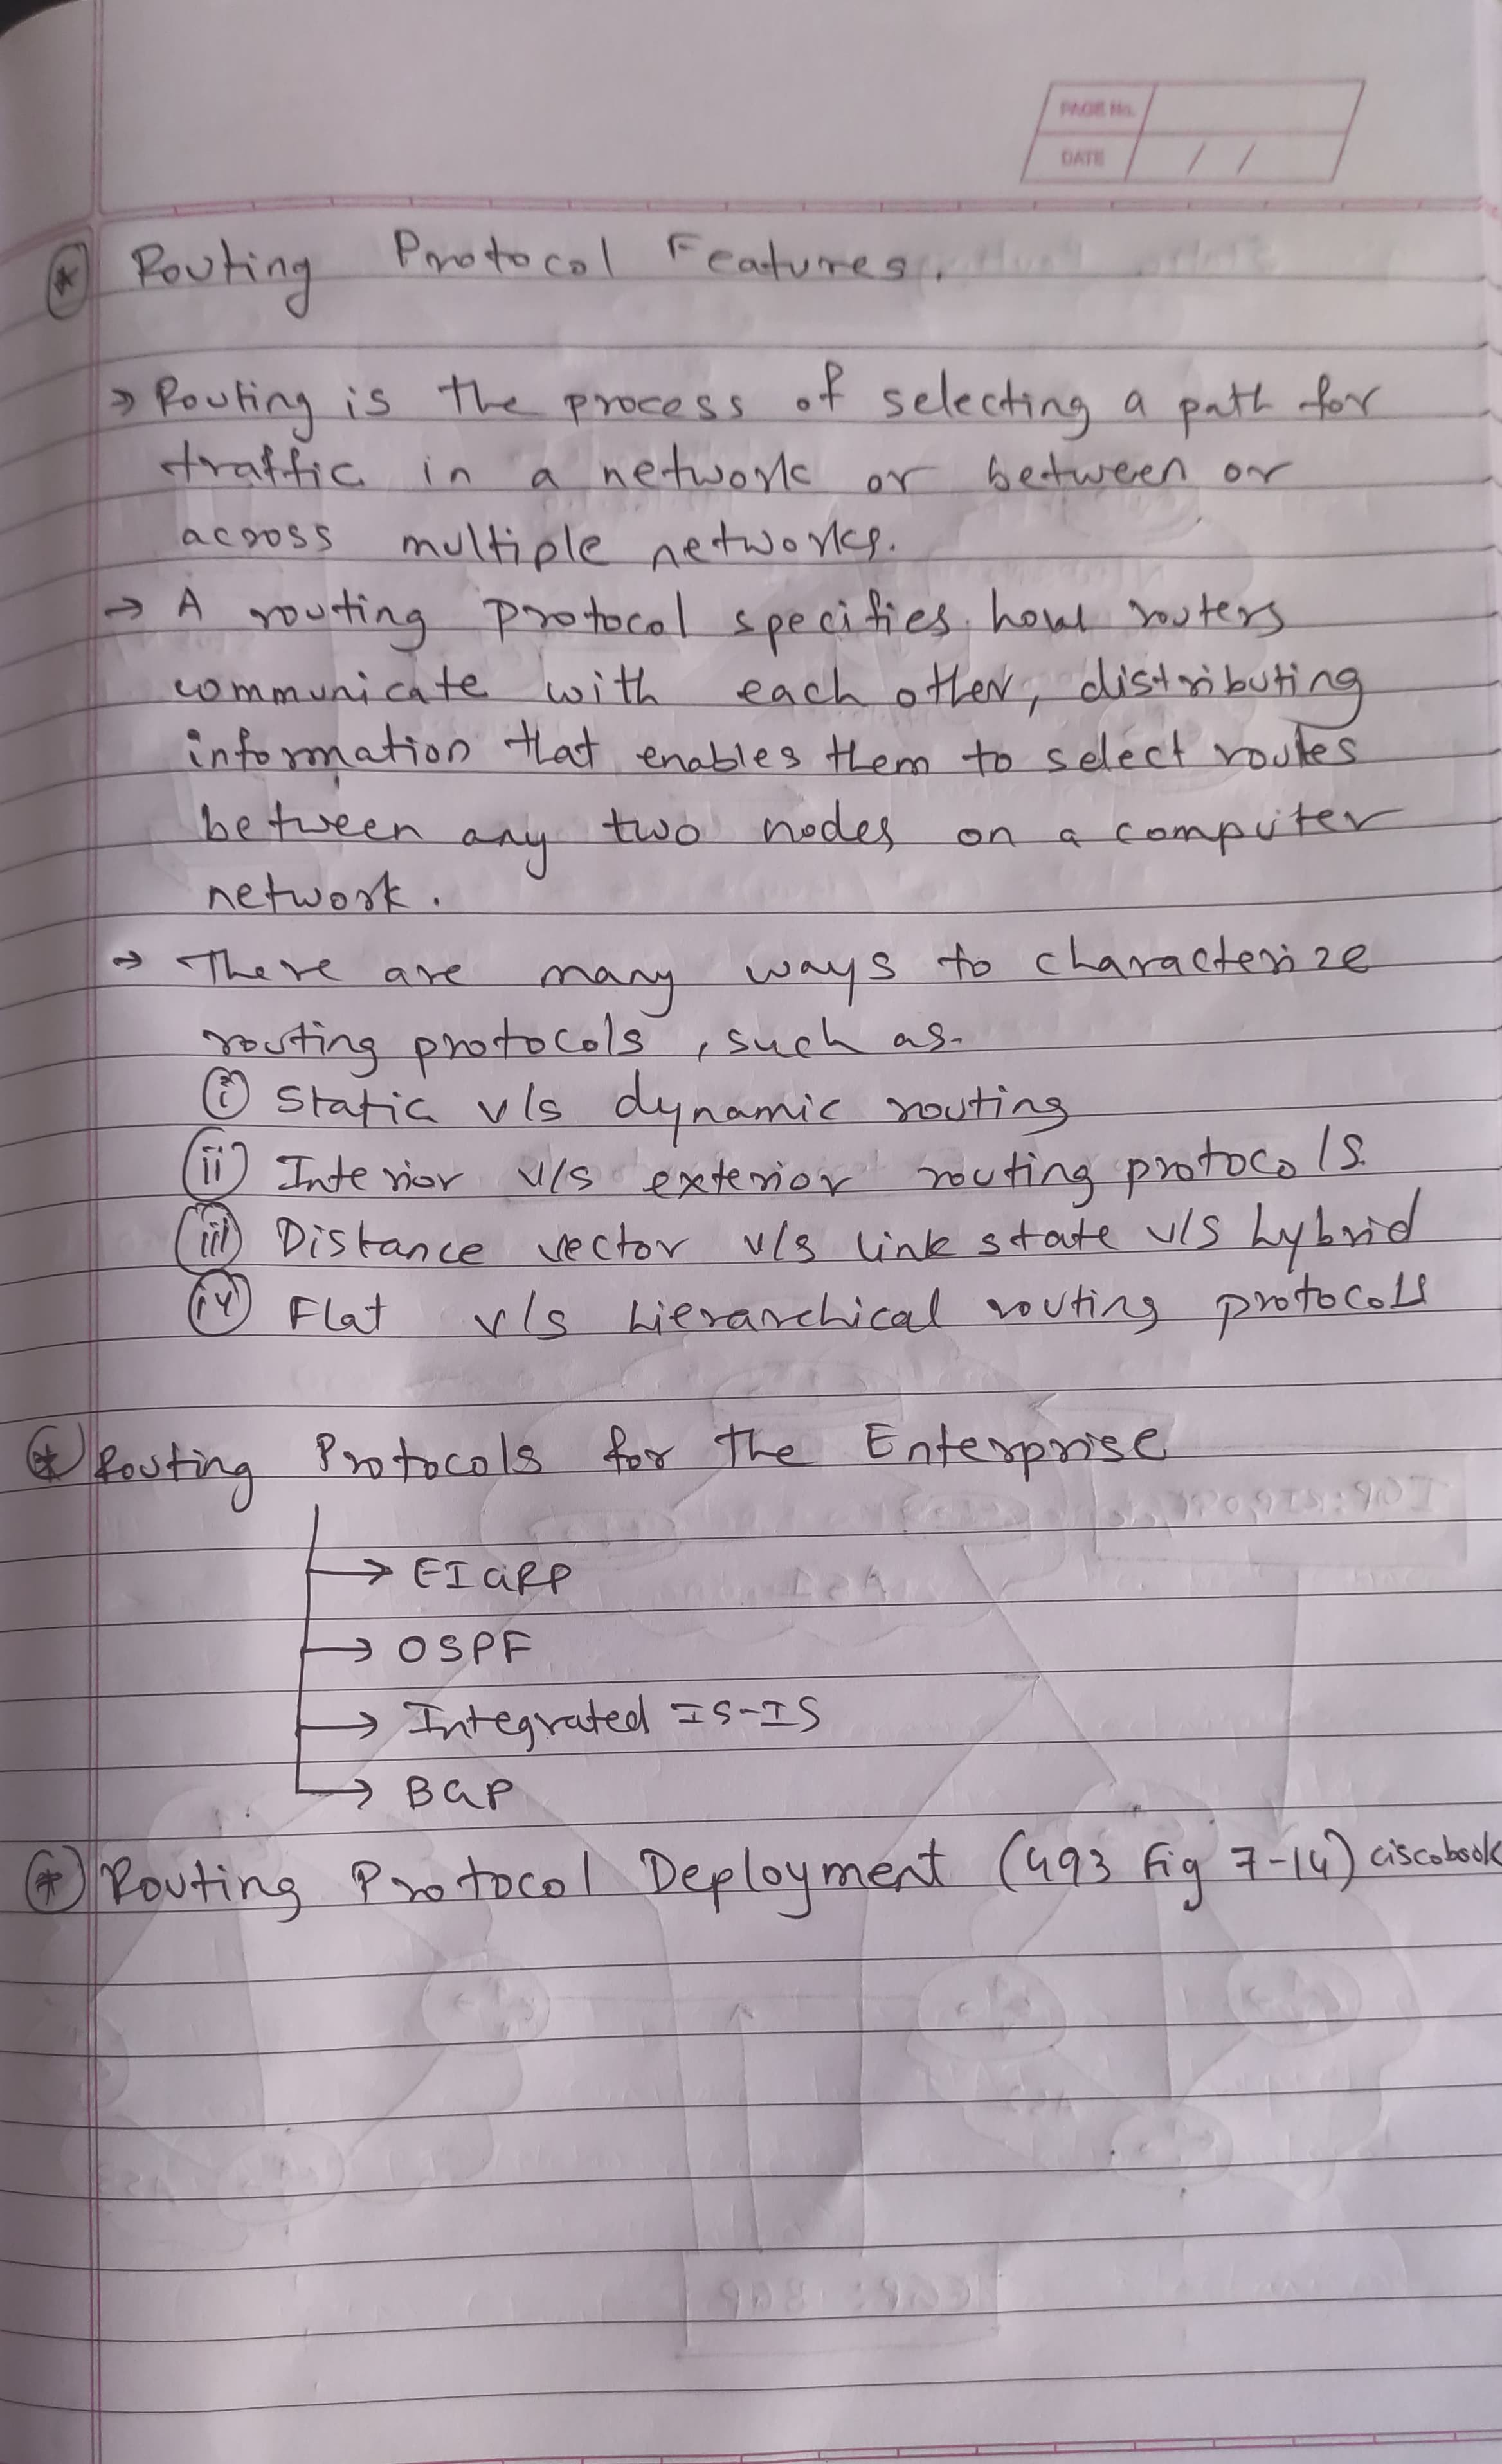 PAGE No.
DATE / /
* Routing Protocol Features.
→ Routing is the process of selecting a path for
traffic in a network or between or
across multiple networks.
→ A routing protocol specifies how routers
communicate with each other, distributing
information that enables them to select routes
between any two nodes on a computer
network.
→ There are many ways to characterize
routing protocols, such as-
(i) Static v/s dynamic routing
(ii) Interior v/s exterior routing protocols.
(iii) Distance vector v/s link state v/s hybrid
(iv) Flat v/s hierarchical routing protocols
* Routing Protocols for the Enterprise
→ EIGRP
→ OSPF
→ Integrated IS-IS
→ BGP
* Routing Protocol Deployment (493 fig 7-14) ciscobook